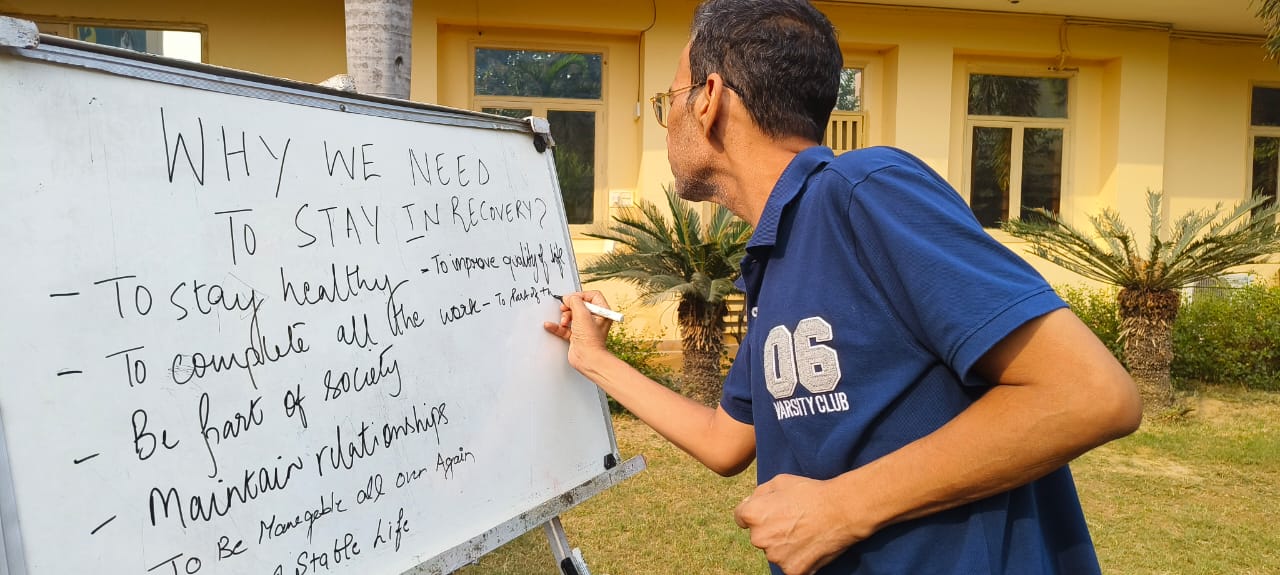 WHY WE NEED
TO STAY IN RECOVERY?
- To stay healthy - To improve quality of life
- To complete all the work - To Part of
- Be part of society
- Maintain relationships
To Be Manegable all over Again
Stable Life
06
VARSITY CLUB